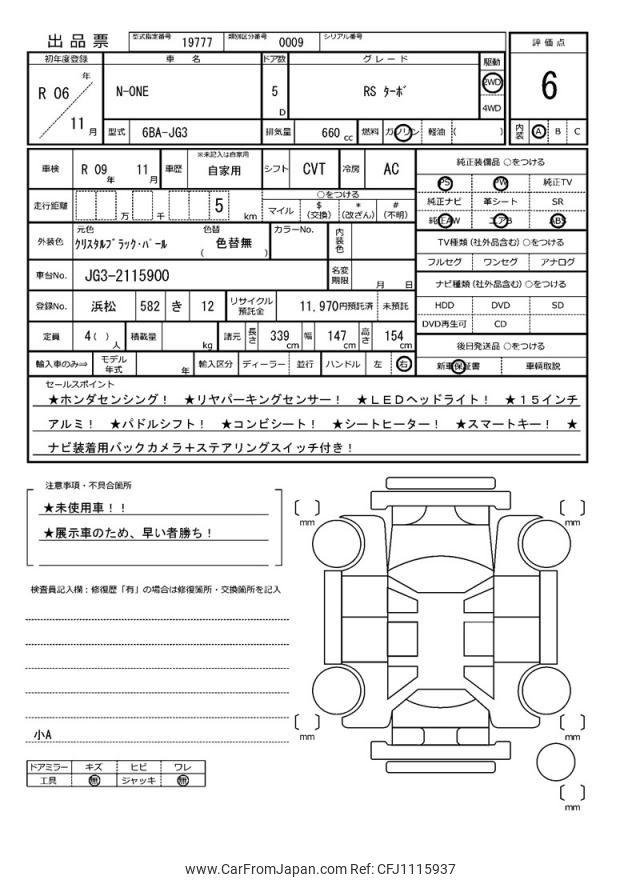 出品票 型式指定番号 19777 類別区分番号 0009 シリアル番号
評価点
6
内装 A B C
初年度登録 車名 ドア数 グレード 駆動
R 06 年 11 月 N-ONE 5 D RS ﾀｰﾎﾞ 2WD 4WD
型式 6BA-JG3 排気量 660 cc 燃料 ガソリン 軽油 ( )
車検 R 09 年 11 月 車歴 ※未記入は自家用 自家用 シフト CVT 冷房 AC
純正装備品 ○をつける
PS PW 純正TV
純正ナビ 革シート SR
純正AW エアB ABS
走行距離 万 千 5 km
○をつける
マイル $ (交換) * (改ざん) # (不明)
外装色 元色 ｸﾘｽﾀﾙﾌﾞﾗｯｸ･ﾊﾟｰﾙ 色替 ( 色替無 ) カラーNo. 内装色
TV種類 (社外品含む) ○をつける
フルセグ ワンセグ アナログ
車台No. JG3-2115900 名変期限 月 日
ナビ種類 (社外品含む) ○をつける
HDD DVD SD
DVD再生可 CD
登録No. 浜松 582 き 12 リサイクル預託金 11,970円預託済 未預託
定員 4( ) 人 積載量 kg 諸元 長さ 339 cm 幅 147 cm 高さ 154 cm
後日発送品 ○をつける
新車保証書 車輌取説
輸入車のみ⇒ モデル年式 年 輸入区分 ディーラー 並行 ハンドル 左 右
セールスポイント
★ホンダセンシング！ ★リヤパーキングセンサー！ ★ＬＥＤヘッドライト！ ★１５インチ
アルミ！ ★パドルシフト！ ★コンビシート！ ★シートヒーター！ ★スマートキー！ ★
ナビ装着用バックカメラ＋ステアリングスイッチ付き！
注意事項・不具合箇所
★未使用車！！
★展示車のため、早い者勝ち！
検査員記入欄：修復歴「有」の場合は修復箇所・交換箇所を記入
小A
ドアミラー キズ ヒビ ワレ
工具 無 ジャッキ 無
mm
mm
mm
mm
mm
www.CarFromJapan.com Ref: CFJ1115937